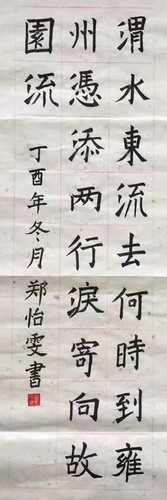 渭水東流去何時到雍
州憑添两行淚寄向故
園流
丁酉年冬月郑怡雯書